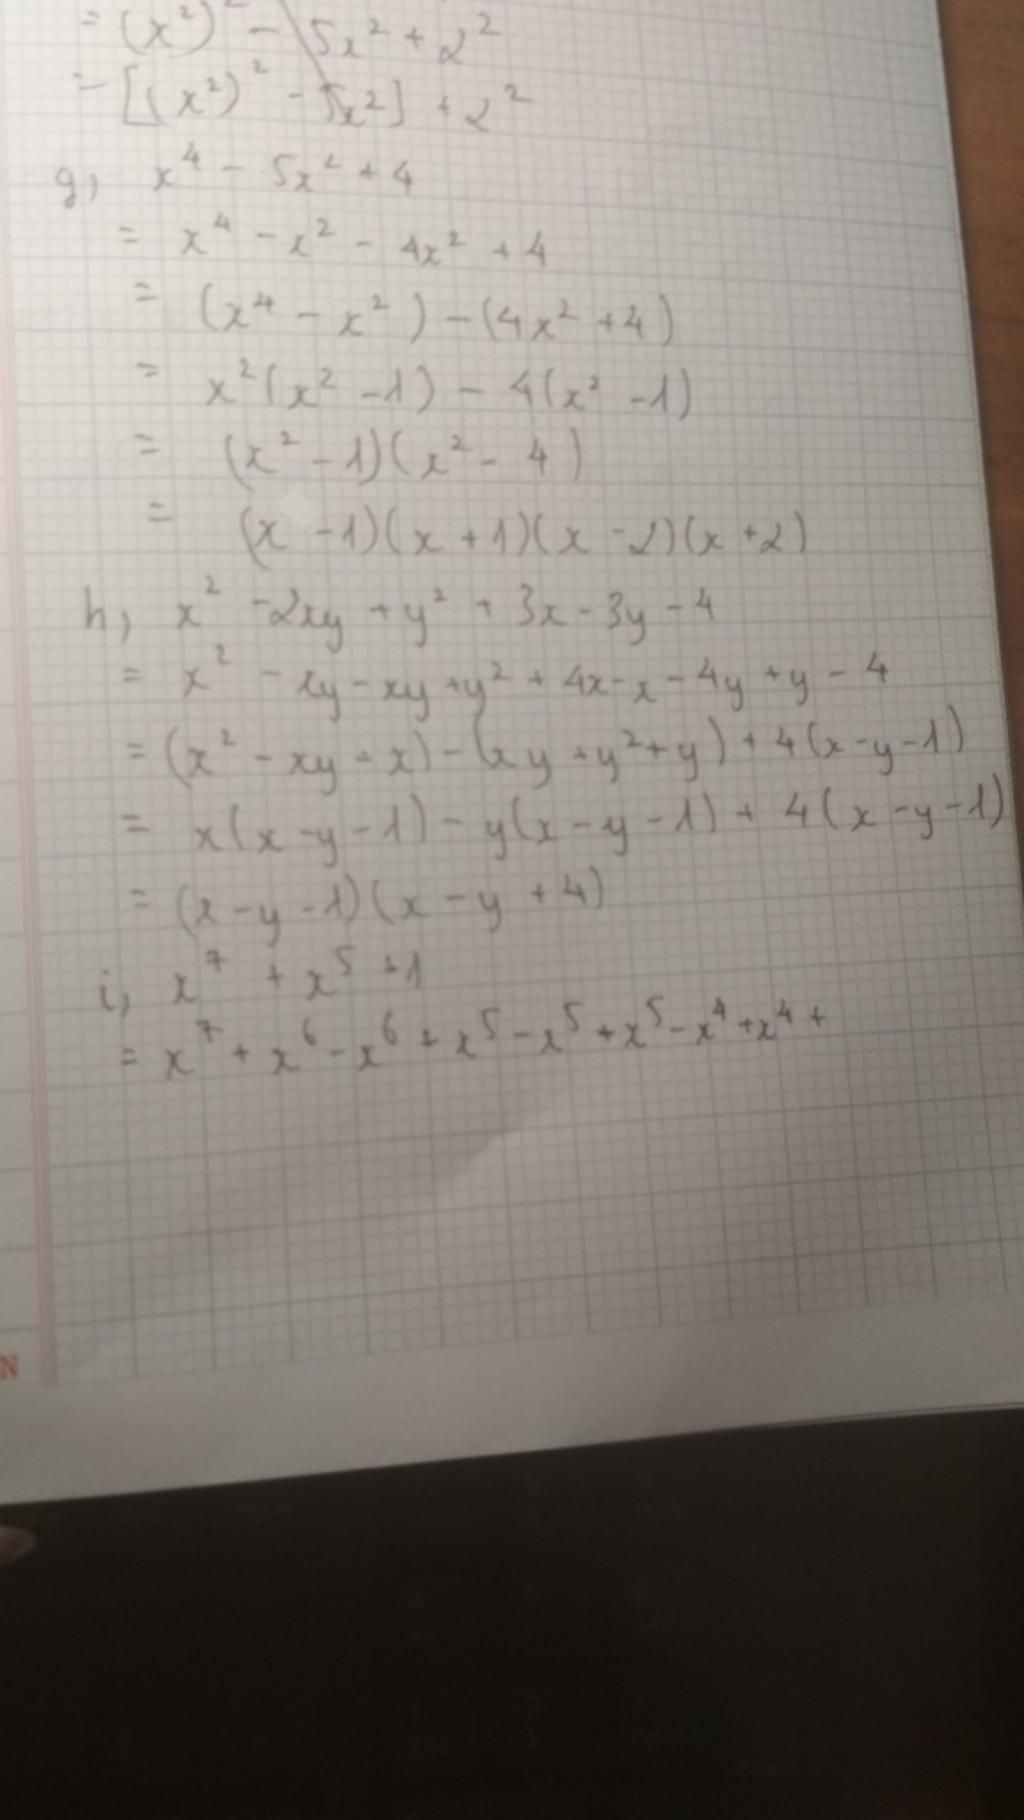 = (x²)² - 5x² + 2²
= [(x²)² - 5x²] + 2²
g, x⁴ - 5x² + 4
= x⁴ - x² - 4x² + 4
= (x⁴ - x²) - (4x² + 4)
= x²(x² - 1) - 4(x² - 1)
= (x² - 1)(x² - 4)
= (x - 1)(x + 1)(x - 2)(x + 2)
h, x² - 2xy + y² + 3x - 3y - 4
= x² - xy - xy + y² + 4x - x - 4y + y - 4
= (x² - xy - x) - (xy + y² + y) + 4(x - y - 1)
= x(x - y - 1) - y(x - y - 1) + 4(x - y - 1)
= (x - y - 1)(x - y + 4)
i, x⁷ + x⁵ + 1
= x⁷ + x⁶ - x⁶ + x⁵ - x⁵ + x⁵ - x⁴ + x⁴ +
N